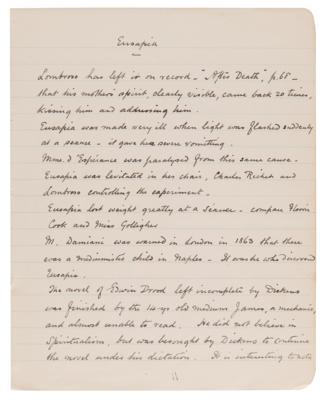 Eusapia
Lombroso has left it on record - "After Death", p.68 -
that his mother's spirit, clearly visible, came back 20 times,
kissing him and addressing him.
Eusapia was made very ill when light was flashed suddenly
at a seance - it gave her severe vomiting.
Mme. d'Esperance was paralysed from this same cause.
Eusapia was levitated in her chair, Charles Richet and
Lombroso controlling the experiment -
Eusapia lost weight greatly at a seance - compare Florrie
Cook and Miss Goligher
M. Damiani was warned in London in 1863 that there
was a mediumistic child in Naples - It was he who discovered
Eusapia.
The novel of Edwin Drood left incomplete by Dickens
was finished by the 14 yr old medium James, a mechanic,
and almost unable to read. He did not believe in
Spiritualism, but was besought by Dickens to continue
the novel under his dictation. It is interesting to note